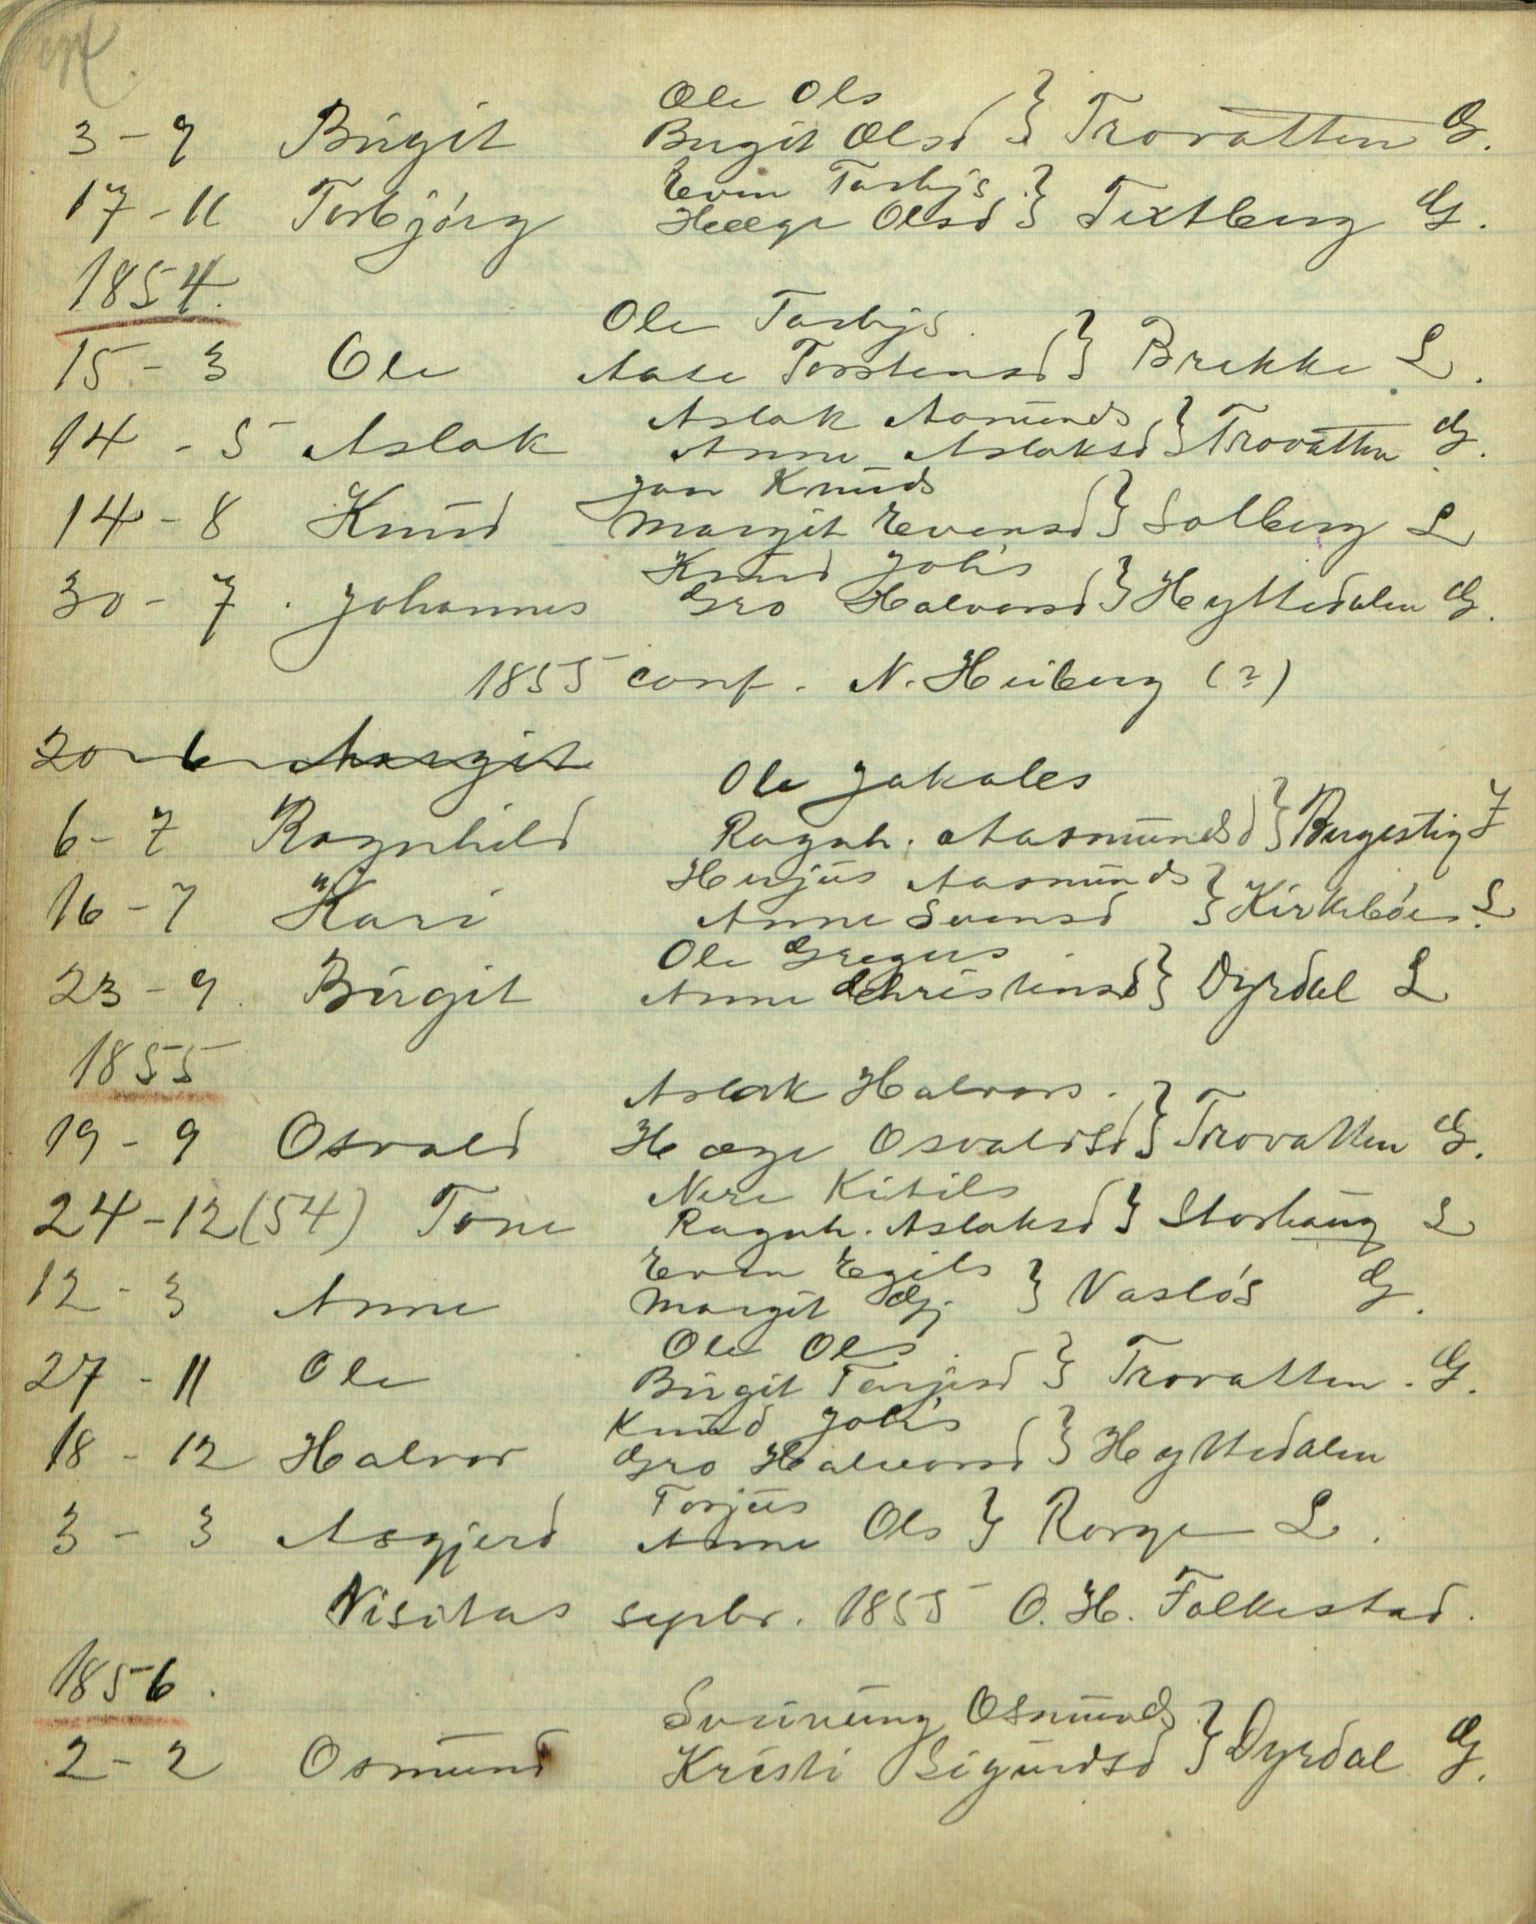 Ole Ols
3 - 9 Birgit Birgit Olsd } Trovatten G.
Even Torbjs.
17 - 11 Torbjørg Hæge Olsd } Textberg G.
1854.
Ole Torbjs.
15 - 3 Ole Aase Torstensd } Brekke L.
Aslak Aasmunds
14 - 5 Aslak Anne Aslaksd } Trovatten G.
Jon Knuds
14 - 8 Knud Margit Evensd } Solberg L
Knud Joh's
30 - 7. Johannes Gro Halvorsd } Hyttedalen G.
1855 conf. N. Heiberg (?)
20 - 6 Margit
Ole Jakobs
6 - 7 Ragnhild Ragnh. Aasmundsd } Bergestig F
Herjus Aasmunds
16 - 7 Kari Anne Svensd } Kirkebøen L.
Ole Gregers
23 - 9. Birgit Anne Christensd } Dyrdal L
1855
Aslak Halvors.
19 - 9 Osvald Hæge Osvaldsd } Trovatten G.
Neri Kitils
24 - 12 (54) Tone Ragnh. Aslaksd } Storhaug L
Even Egils
12 - 3 Anne Margit Gj. } Vasløs G.
Ole Ols.
27 - 11 Ole Birgit Terjesd } Trovatten. G.
Knud Joh's
18 - 12 Halvor Gro Halvorsd } Hyttedalen
Torjus
3 - 3 Asgjerd Anne Ols } Rorge L.
Visitas sepbr. 1855 O. H. Folkestad.
1856.
Sveinung Osmunds
2 - 2 Osmund Kristi Sigurdsd } Dyrdal G.